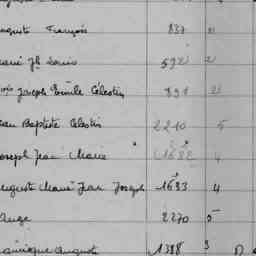 François 837 2
Louis 592 2
Joseph Emile Célestin 891 2
Baptiste Célestin 2210 5
Joseph Jean Marie 1682 4
Auguste Marie Jean Joseph 1633 4
Ange 2270 5
Dominique Auguste 1388 3